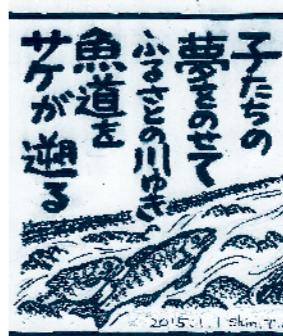 子たちの
夢をのせて
ふるさとの川ゆき
魚道を
サケが遡る
2015.1.1